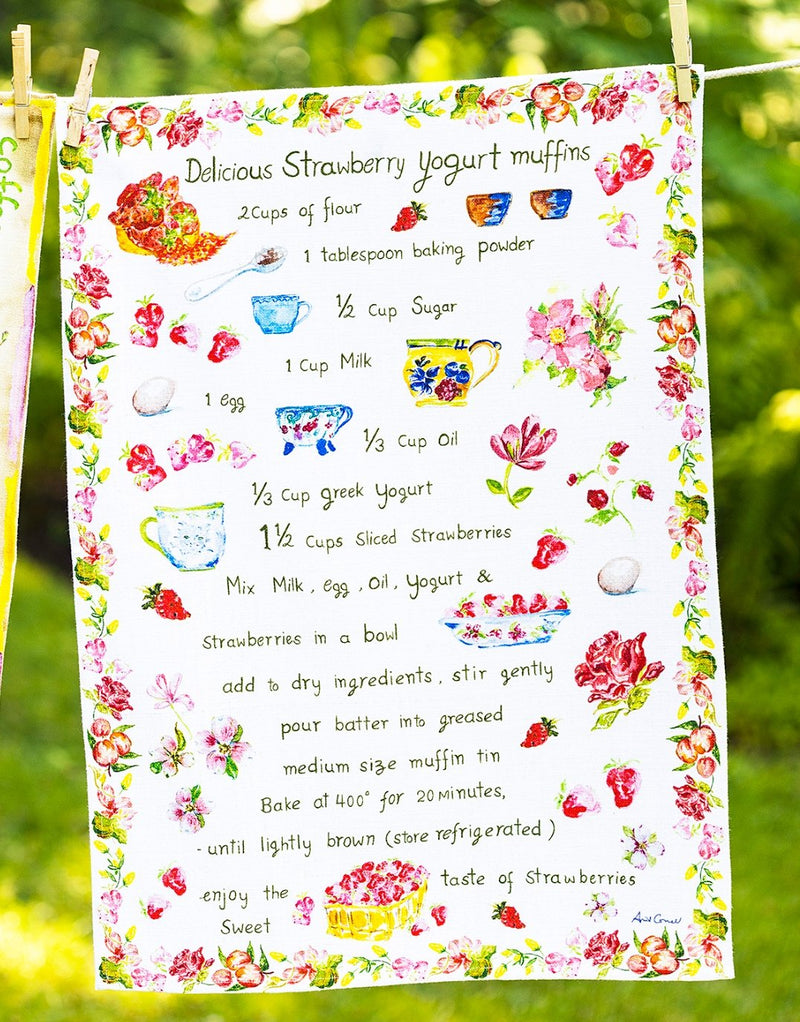 Delicious Strawberry Yogurt muffins
2 Cups of flour
1 tablespoon baking powder
½ Cup Sugar
1 Cup Milk
1 egg
⅓ Cup Oil
⅓ Cup greek Yogurt
1½ Cups Sliced Strawberries
Mix Milk, egg, Oil, Yogurt &
Strawberries in a bowl
add to dry ingredients, stir gently
pour batter into greased
medium size muffin tin
Bake at 400° for 20 Minutes,
- until lightly brown (store refrigerated)
enjoy the
Sweet
taste of Strawberries